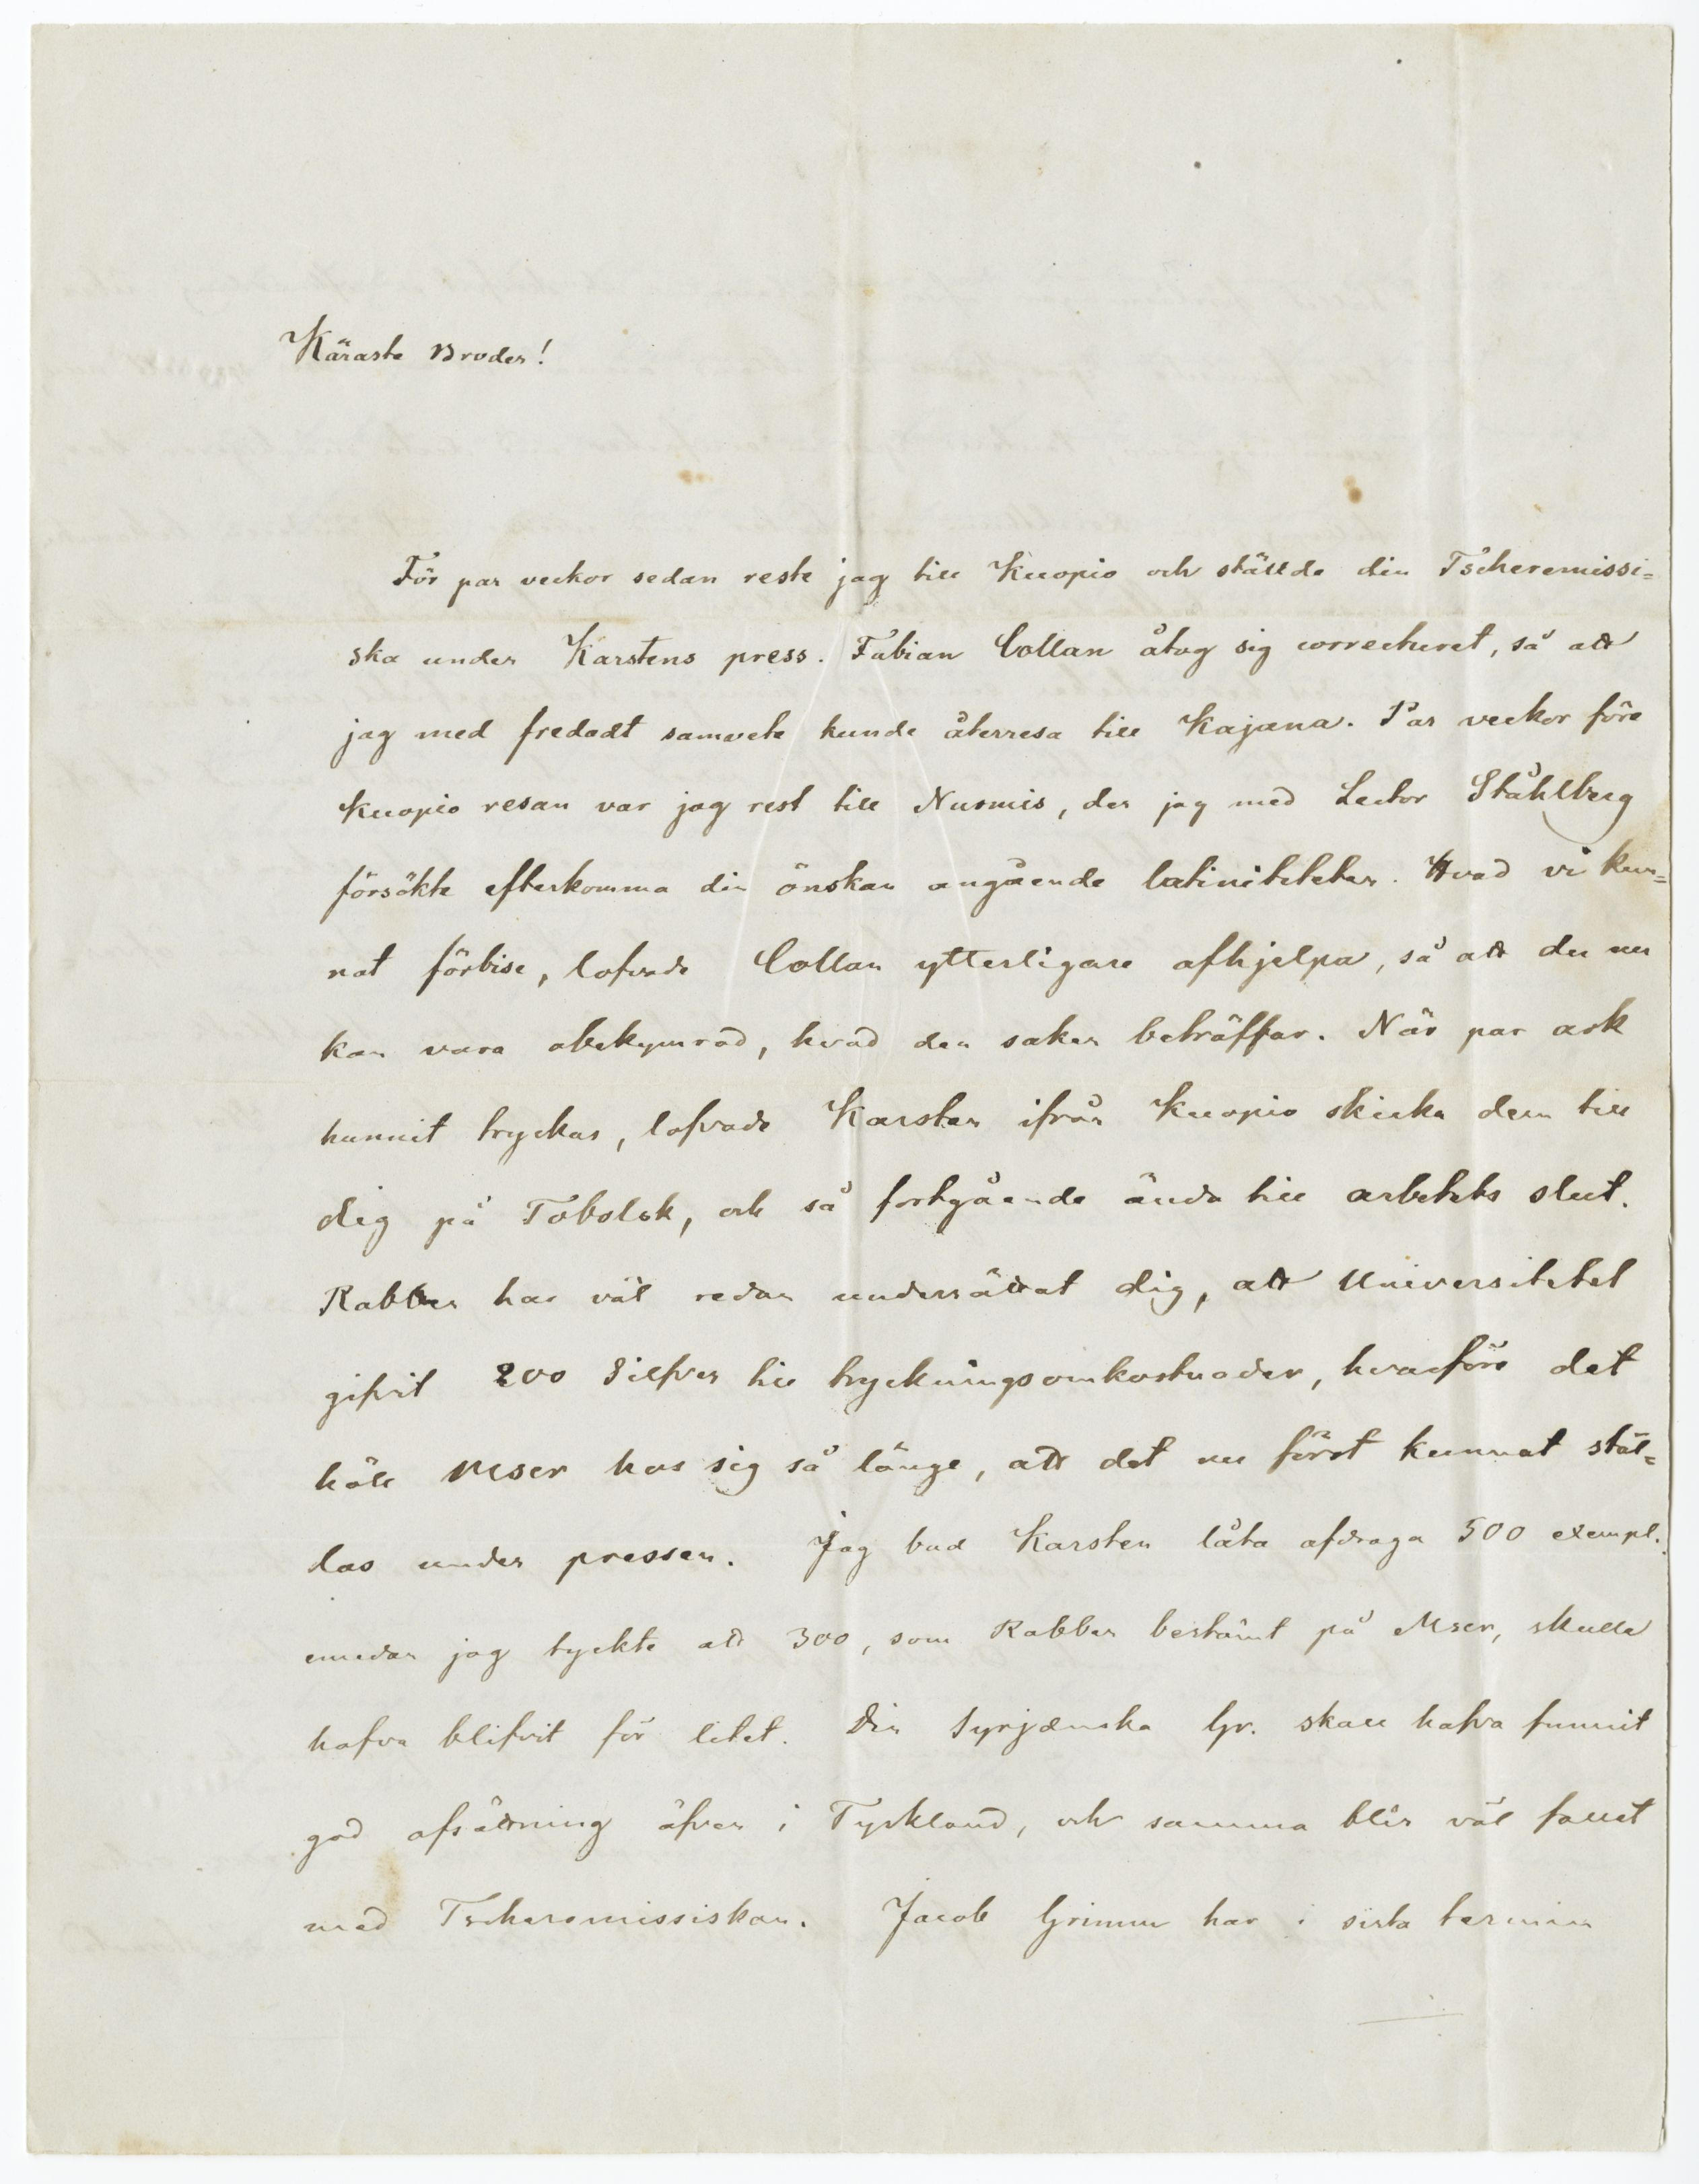 Käraste Broder!
För par veckor sedan reste jag till Kuopio och ställde din Tscheremissi=
ska under Karstens press. Fabian Collan åtog sig correcturet, så att
jag med fredadt samvete kunde återresa till Kajana. Par veckor före
Kuopio resan var jag rest till Nurmis, der jag med Lector Ståhlberg
försökte efterkomma din önskan angående latiniteten. Hvad vi kun=
nat förbise, lofvade Collan ytterligare afhjelpa, så att du nu
kan vara obekymrad, hvad den saken beträffar. När par ark
hunnit tryckas, lofvade Karsten ifrån Kuopio skicka dem till
dig på Tobolsk, och så fortgående ända till arbetets slut.
Rabben har väl redan underrättat dig, att Universitetet
gifvit 200 Silfver till tryckningsomkostnader, hvarföre det
höll Mscr hos sig så länge, att det nu först kunnat stäl=
las under pressen. Jag bad Karsten låta afdraga 500 exempl.
emedan jag tyckte att 300, som Rabben bestämt på Mscr, skulle
hafva blifvit för litet. Din Syrjænska Gr. skall hafva funnit
god afsättning äfven i Tyskland, och samma blir väl fallet
med Tscheremissiskan. Jacob Grimm har i sista termin